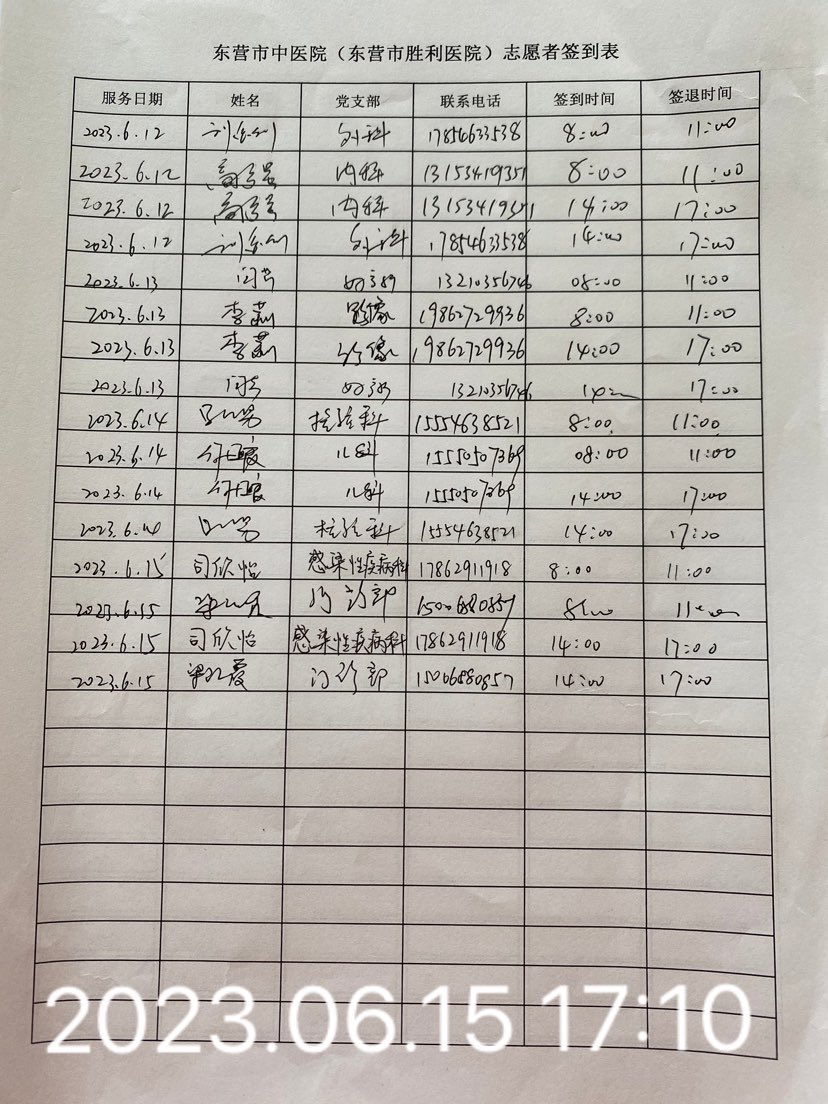 东营市中医院（东营市胜利医院）志愿者签到表
服务日期 姓名 党支部 联系电话 签到时间 签退时间
2023.6.12 外科 17854633538 8:00 11:00
2023.6.12 内科 13153419351 8:00 11:00
2023.6.12 内科 13153419351 14:00 17:00
2023.6.12 外科 17854633538 14:00 17:00
2023.6.13 闫芸 13210356746 08:00 11:00
2023.6.13 李莉 影像 19862729936 8:00 11:00
2023.6.13 李莉 影像 19862729936 14:00 17:00
2023.6.13 闫芸 13210356746 17:00
2023.6.14 检验科 15554638521 8:00 11:00
2023.6.14 儿科 15550507369 08:00 11:00
2023.6.14 儿科 15550507369 14:00 17:00
2023.6.14 检验科 15554638521 14:00 17:00
2023.6.15 司欣怡 感染性疾病科 17862911918 8:00 11:00
2023.6.15 门诊部 15006880857 8:00 11:00
2023.6.15 司欣怡 感染性疾病科 17862911918 14:00 17:00
2023.6.15 门诊部 15006880857 14:00 17:00
2023.06.15 17:10